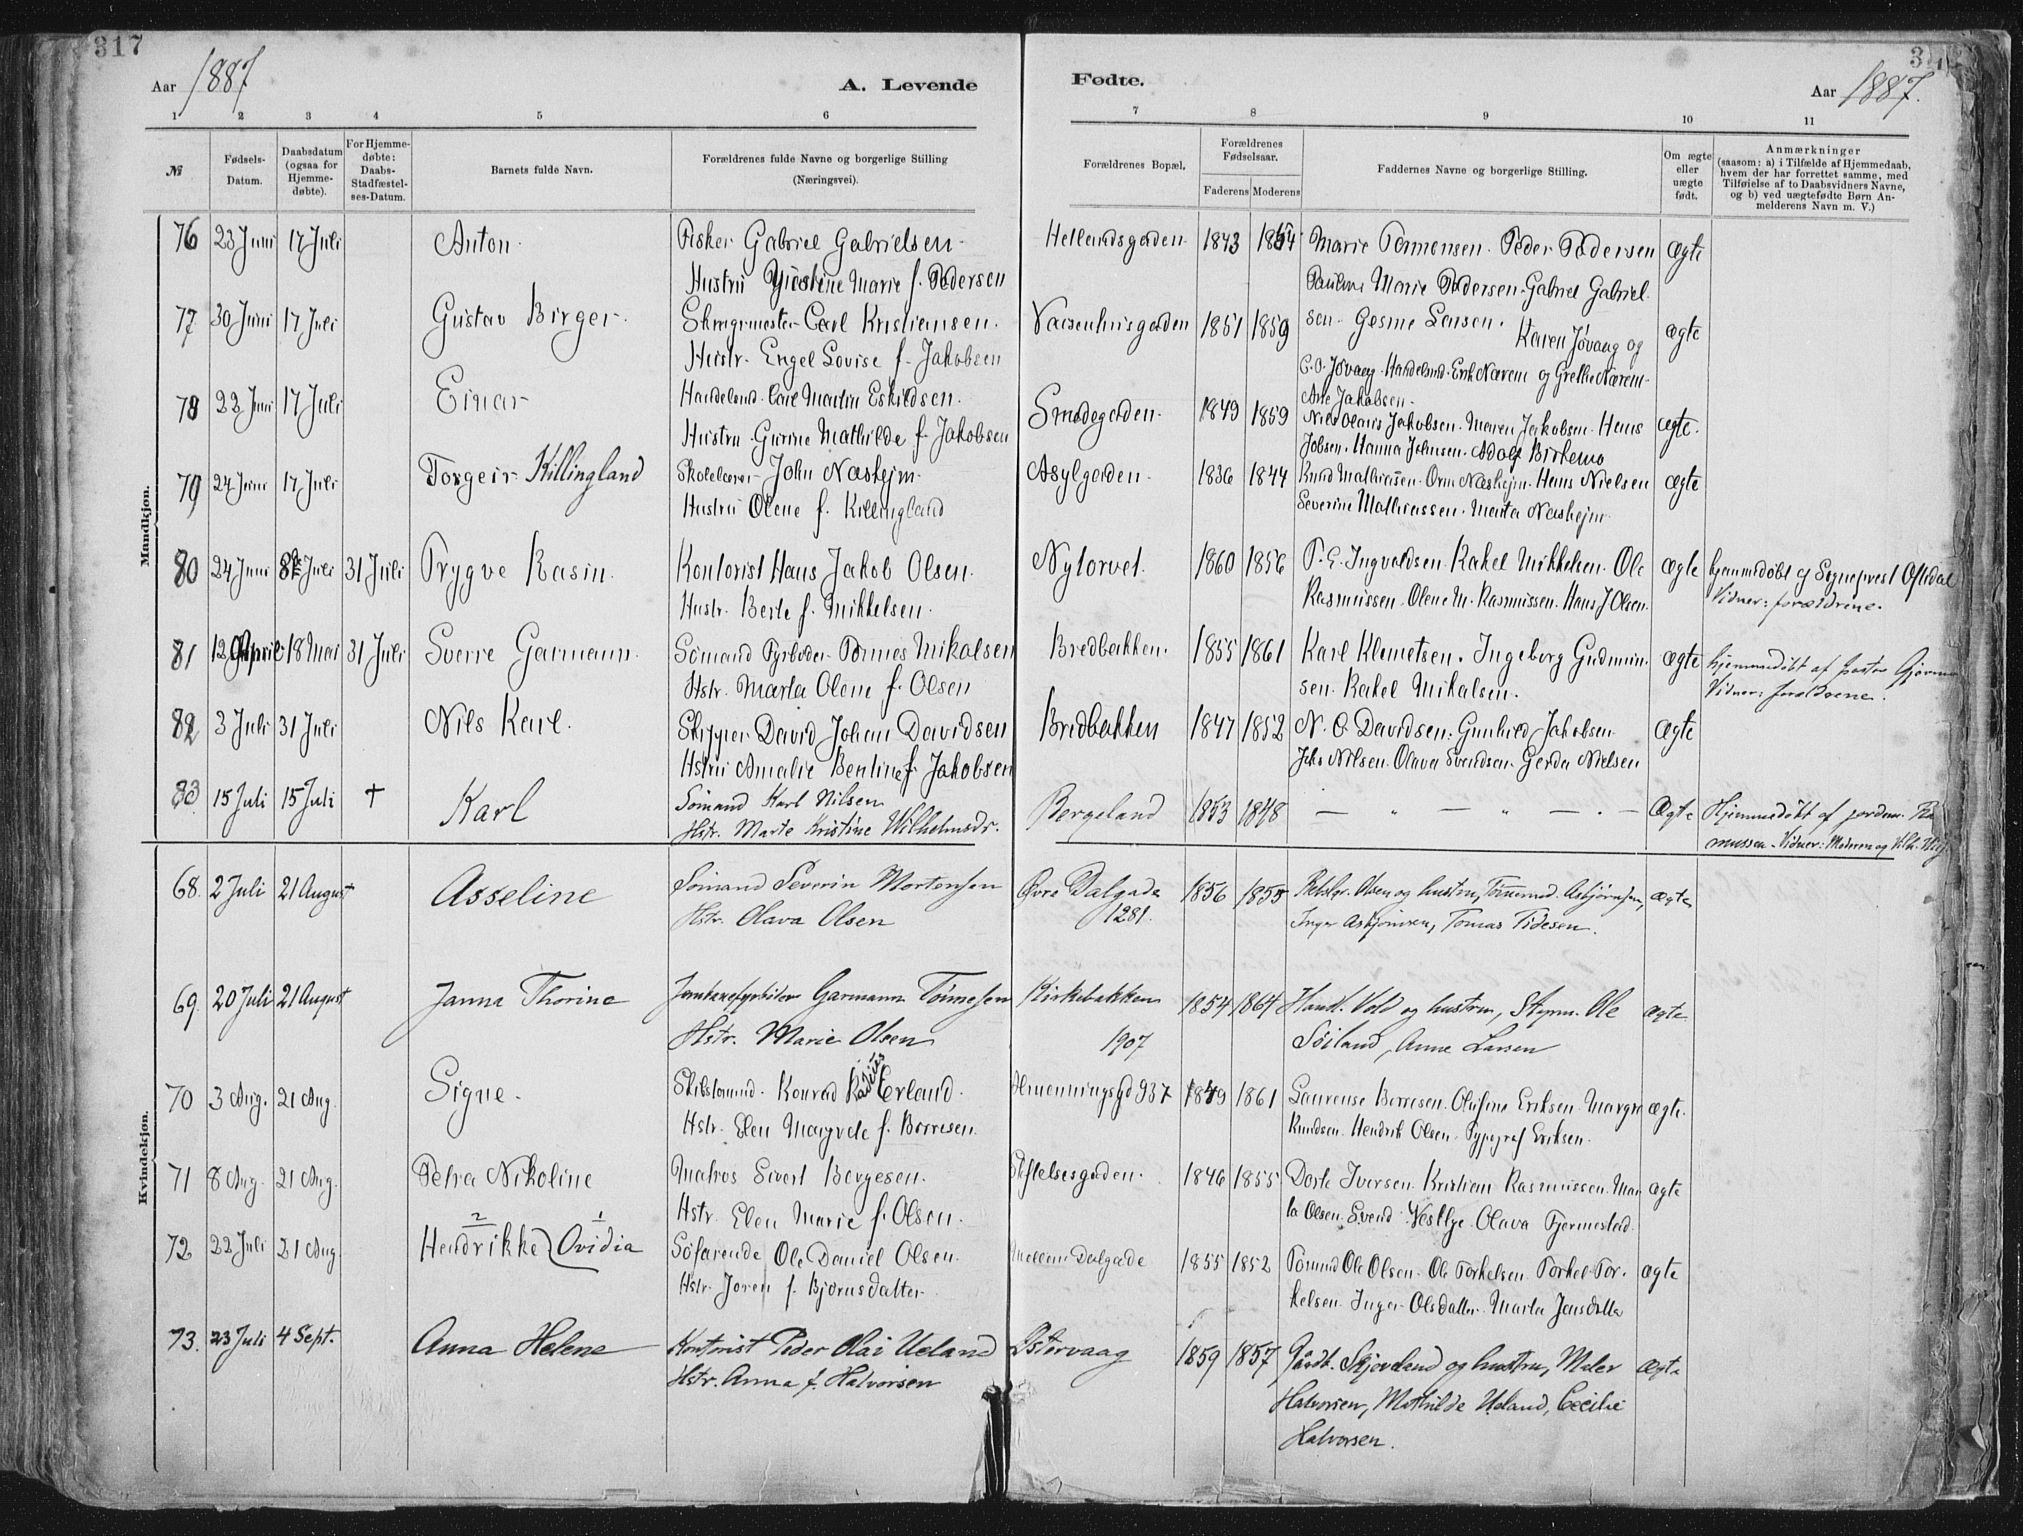 317
Aar 1887
A. Levende
Fødte.
Aar 1887.
1 2 3 4 5 6 7 8 9 10 11
№
Fødsels-Datum.
Daabsdatum (ogsaa for Hjemme-døbte).
For Hjemme-døbte: Daabs-Stadfæstel-ses-Datum.
Barnets fulde Navn.
Forældrenes fulde Navne og borgerlige Stilling
(Næringsvei).
Forældrenes Bopæl.
Forældrenes Fødselsaar.
Faderens Moderens
Faddernes Navne og borgerlige Stilling.
Om ægte eller uægte født.
Anmærkninger
(saasom: a) i Tilfælde af Hjemmedaab,
hvem der har forrettet samme, med
Tilføielse af to Daabsvidners Navne,
og b) ved uægtefødte Børn An-
melderens Navn m. V.)
Mandkjøn.
76 23 Juni 17 Juli Anton Fisker Gabriel Gabrielsen Hellandsgaden 1843 1854 Marie Tormonsen. Peder Pedersen Ægte
Hustru Marie f. Pedersen Pauline Marie Pedersen. Gabriel Gabriel
77 30 Juni 17 Juli Gustav Birger. Carl Kristiansen. Vaisenhusgaden 1851 1859 sen. Gesine Larsen. Karen Jøvaag og ægte
Hustr. Engel Lovise f. Jakobsen C.O. Jøvaag. Handelsmd. Erik Nærem og Grethe Nærem.
78 22 Juni 17 Juli Einar Handelsmd. Carl Martin Eskildsen. Smedegaden. 1849 1859 Ane Jakobsen.
Nils Olaus Jakobsen. Maren Jakobsen. Hans ægte.
Hustru Gurine Mathilde f. Jakobsen Jobsen. Hanna Johnsen. Adolf Birkemo
79 24 Juni 17 Juli Torgeir Killingland Skolelærer John Næshejm Asylgaden. 1836 1844 Knud Mathiasen. Orm Næshejm. Hans Nielsen ægte
Hustru Olene f. Killingland Severine Mathiassen. Marta Næshejm
80 24 Juni Juli 31 Juli Trygve Rasin. Kontorist Hans Jakob Olsen. Nytorvet. 1860 1856 P. E. Ingvaldsen. Rakel Mikkelsen. Ole ægte hjemmedøbt af Sogneprest Oftedal
Hustr. Berte f. Mikkelsen. Rasmussen. Olene M. Rasmussen. Hans J Olsen. Vidner: forældrene.
81 12 April 18 Mai 31 Juli Sverre Garmann. Sømand Fyrbøder Tønnes Mikalsen Bredbakken. 1855 1861 Karl Klemetsen. Ingeborg Gudmun- ægte hjemmedøbt af pastor
Hstr. Marta Olene f. Olsen sen. Rakel Mikalsen. Vidner: forældrene.
82 3 Juli 31 Juli Nils Karl. Skipper David Johan Davidsen Bredbakken 1847 1852 N. C. Davidsen. Gunhild Jakobsen Ægte
Hstru Amalie Bentine f. Jakobsen Nilsen. Olava Svendsen. Gerda Nielsen
83 15 Juli 15 Juli † Karl Sømand Karl Nilsen Bergeland 1853 1848 — „ — „ — . — Ægte Hjemmedøbt af jordm. Ras
Hstr. Marte Kristine Wilhelmsdr. mussen. Vidner: Moderen og
Kvindekjøn.
68. 2 Juli 21 August Asseline Sømand Severin Mortensen Øvre Dalgade 1856 1855 Olsen og hustru, Asbjørnsen, ægte
Hstr. Olava Olsen 1281. Inger Asbjørnsen, Tomas Tidesen.
69. 20 Juli 21 August Janna Thorine Garmann Tønnesen Kirkebakken 1854 1864 Handl. Vold og hustru, Styrm. Ole ægte
Hstr. Marie Olsen 1907 Søiland, Anne Larsen
70 3 Aug. 21 Aug. Signe. Skibstømmd. Konrad Erland. 937 1849 1861 Laurense Børresen. Olufine Eriksen. Margr ægte.
Hstr. Elen Margrete f. Børresen. Knudsen. Hendrik Olsen. Typograf Eriksen.
71 8 Aug. 21 Aug. Petra Nikoline Matros Sivert Børgesen. Stiftelsesgaden. 1846 1855 Dorte Iversen. Kristian Rasmussen. Mar ægte
Hstr. Elen Marie f. Olsen. ta Olsen. Svend Vestlye. Olava Tjermestad.
2 1
72 22 Juli 21 Aug Hendrikke Ovidia Søfarende Ole Daniel Olsen. Mellem Dalgade 1855 1852 Ole Olsen. Ole Torkelsen. Torkel Tor- ægte
Hstr. Joren f. Bjørnsdatter kelsen. Inger Olsdatter. Marta Jensdatte
73. 23 Juli 4 Sept. Anna Helene Kontorist Peder Olai Ueland Østervaag 1859 1857 Skjeveland og hustru, Maler ægte
Hstr. Anna f. Halvorsen Halvorsen, Mathilde Ueland, Cecilie
Halvorsen.